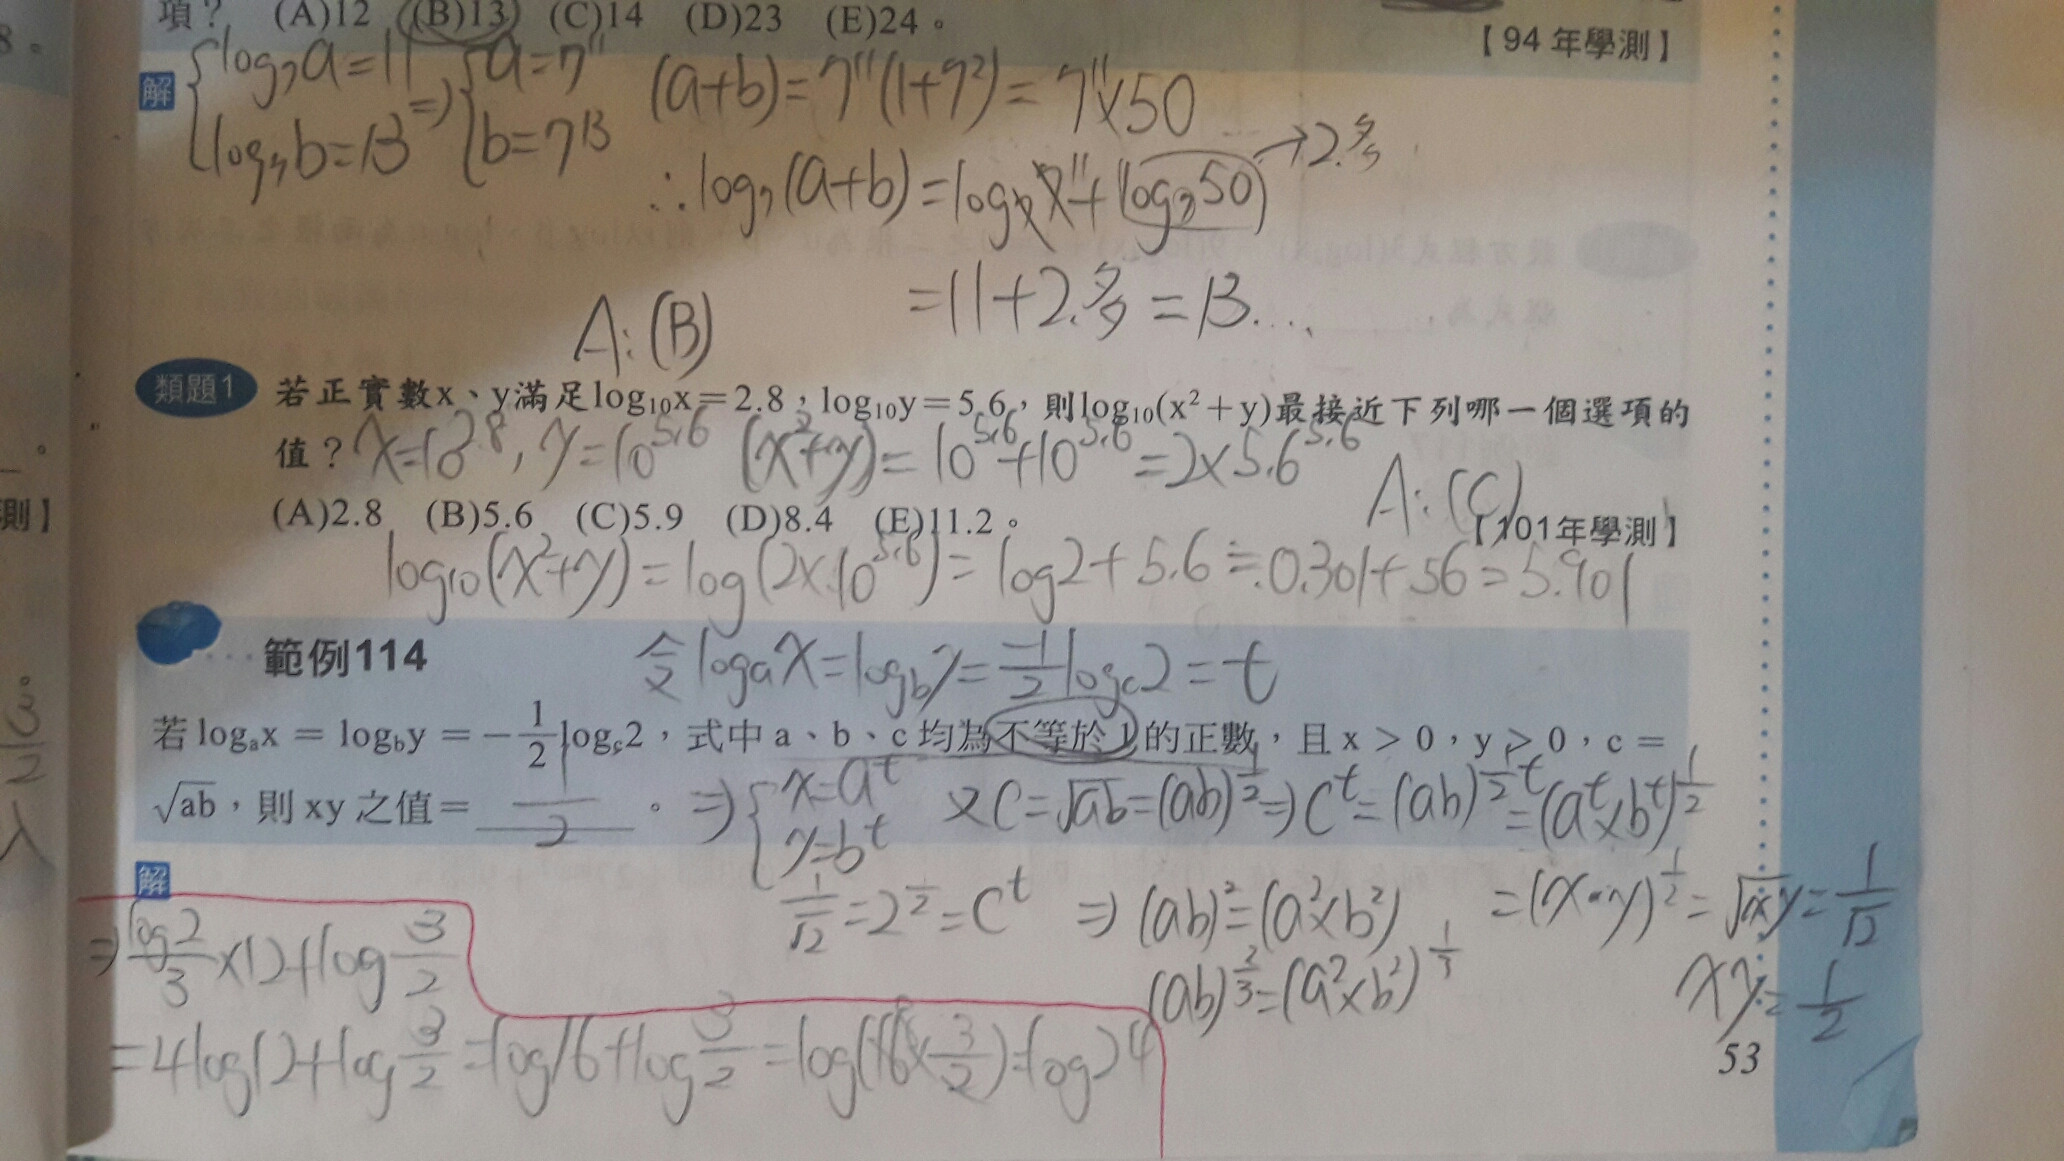 項? (A)12 (B)13 (C)14 (D)23 (E)24。
【94年學測】
8。
解 log₇a=11 a=7¹¹ (a+b)=7¹¹(1+7²)=7¹¹×50
log₇b=13 ⇒ b=7¹³
∴log₇(a+b)=log₇7¹¹+log₇50 →2.多
=11+2.多=13....
A:(B)
類題1 若正實數x、y滿足log₁₀x=2.8,log₁₀y=5.6,則log₁₀(x²+y)最接近下列哪一個選項的
值? x=10^2.8, y=10^5.6 (x²+y)=10^5.6+10^5.6=2×5.6^5.6
A:(C)
(A)2.8 (B)5.6 (C)5.9 (D)8.4 (E)11.2。
【101年學測】
測】
log₁₀(x²+y)=log(2×10^5.6)=log2+5.6≒0.301+56=5.901
範例114 令logₐx=log_b y=-1/2 log_c 2=t
若 logₐx = log_b y = -1/2 log_c 2,式中 a、b、c 均為不等於 1 的正數,且 x > 0,y > 0,c =
√ab,則 xy 之值= 1/2 。 ⇒ x=a^t 又C=√ab=(ab)^1/2⇒C^t=(ab)^1/2t=(a^t×b^t)^1/2
y=b^t
解
1/√2=2^1/2=C^t ⇒(ab)²=(a²×b²) =(x·y)^1/2=√xy=1/√2
(ab)^2/3=(a²×b²)^1/3 xy=1/2
⇒ log2/3 ×12+log 3/2
=4log12+log 3/2=log16+log 3/2=log(16×3/2)=log24
53